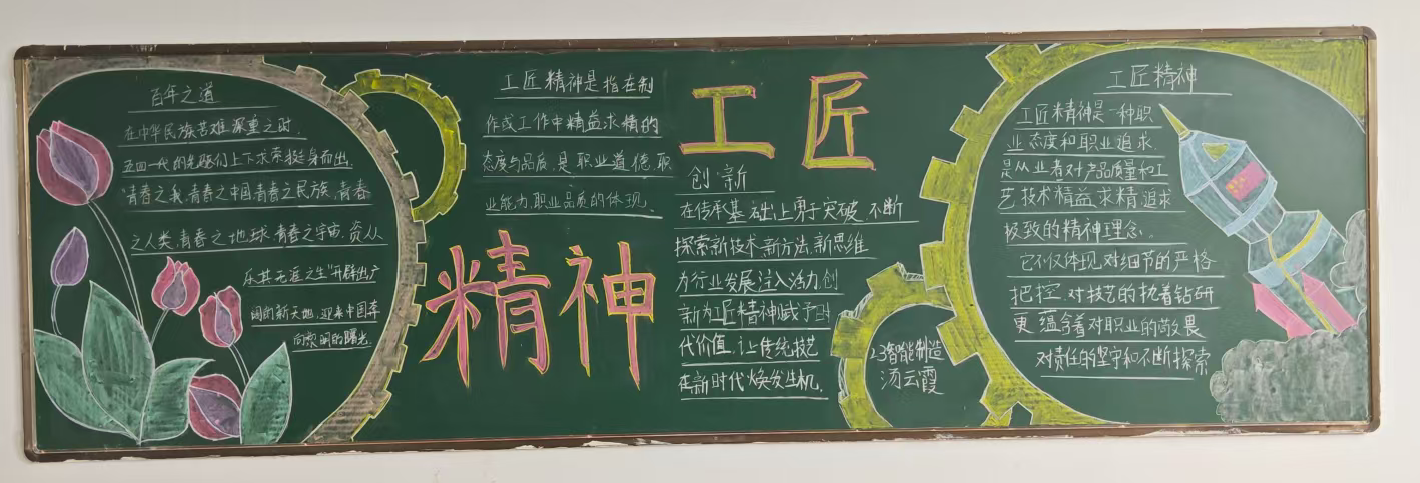 百年之道
在中华民族苦难深重之时,
五四一代的先驱们上下求索挺身而出,
"青春之我,青春之中国,青春之民族,青春
之人类,青春之地球,青春之宇宙,资以
乐其无涯之生"开辟出广
阔的新天地,迎来中国奔
向黎明的曙光.
工匠精神是指在制
作或工作中精益求精的
态度与品质,是职业道德,职
业能力,职业品质的体现.
工匠
精神
创新
在传承基础上勇于突破,不断
探索新技术,新方法,新思维
为行业发展注入活力,创
新为工匠精神赋予时
代价值,让传统技艺
在新时代焕发生机.
23智能制造
汤云霞
工匠精神
工匠精神是一种职
业态度和职业追求,
是从业者对产品质量和工
艺技术精益求精,追求
极致的精神理念。
它不仅体现对细节的严格
把控,对技艺的执着钻研
更蕴含着对职业的敬畏
对责任的坚守和不断探索